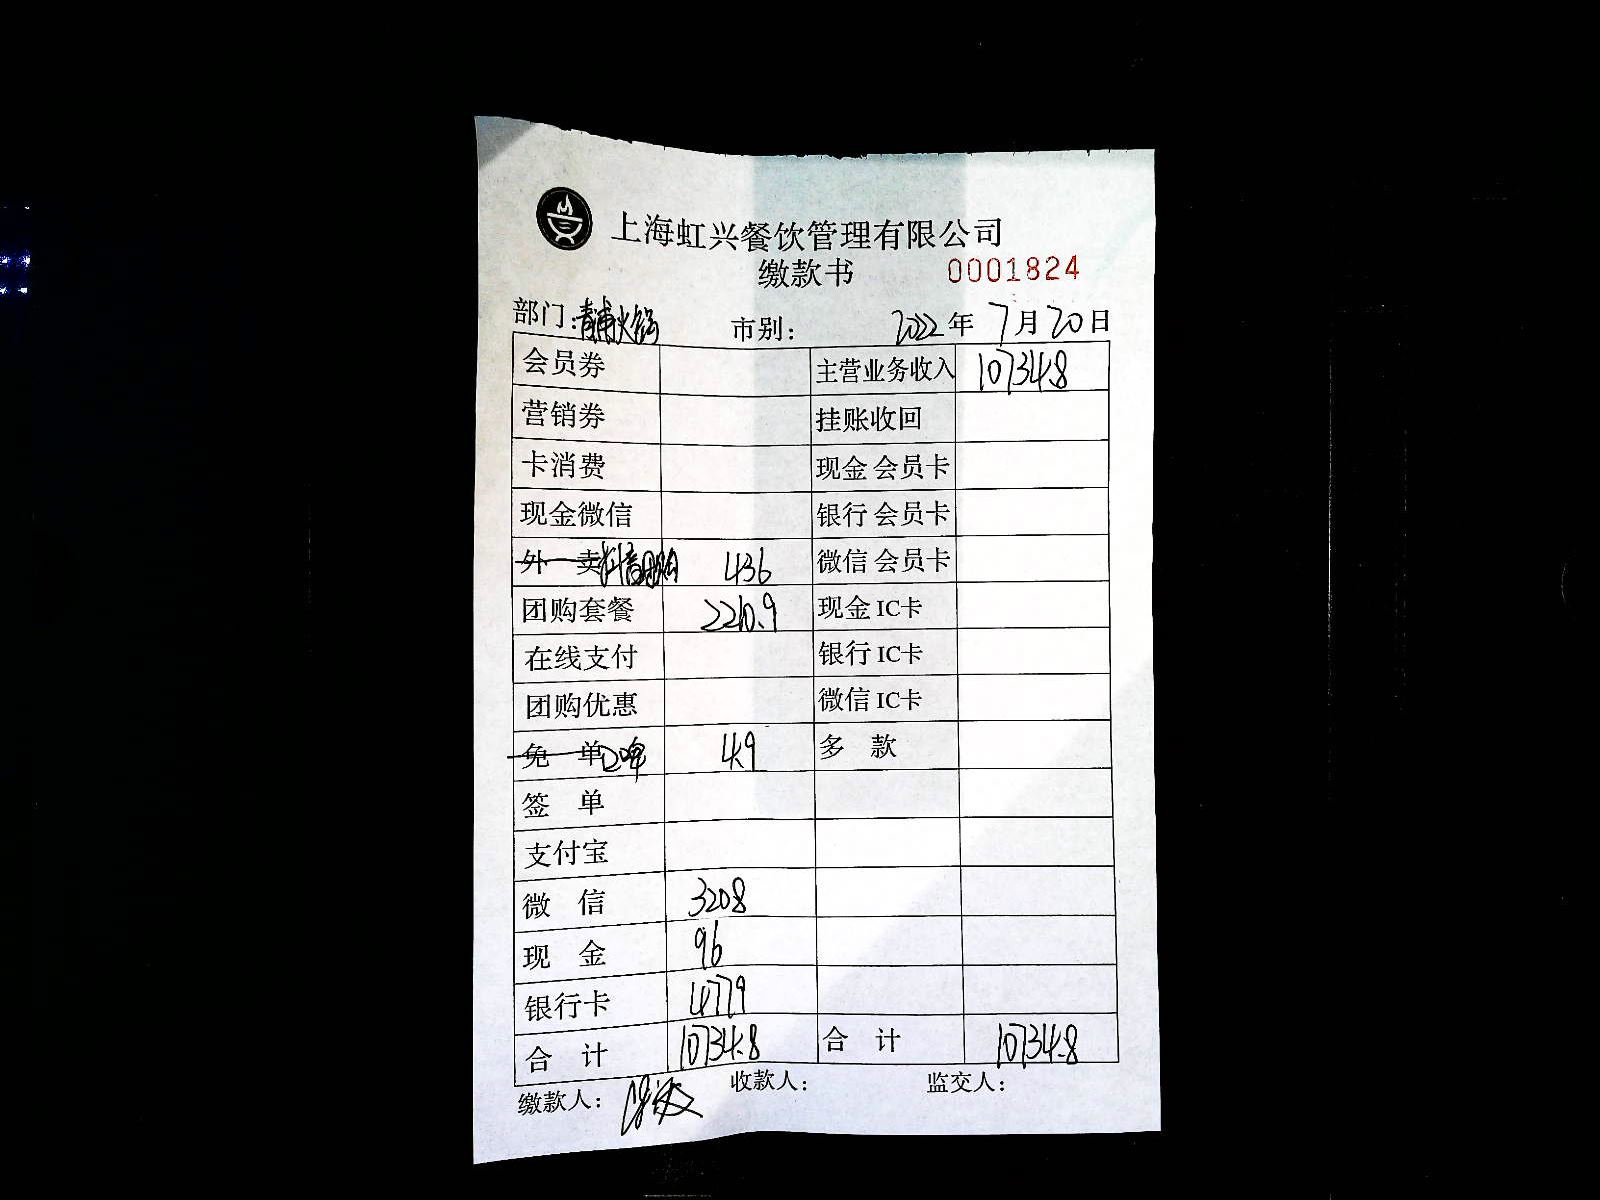 上海虹兴餐饮管理有限公司
缴款书 0001824
部门：青浦火锅 市别： 2022年7月20日
会员券 主营业务收入 10734.8
营销券 挂账收回
卡消费 现金 会员卡
现金微信 银行 会员卡
外卖 抖音团购 436 微信 会员卡
团购套餐 2210.9 现金 IC卡
在线支付 银行 IC卡
团购优惠 微信 IC卡
免单 口啤 4.9 多款
签单
支付宝
微信 3208
现金 96
银行卡 4779
合计 10734.8 合计 10734.8
缴款人： 收款人： 监交人：